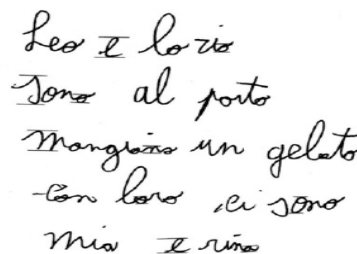 Leo e lo zio
sono al porto
mangiano un gelato
con loro, ci sono
Mia e rina